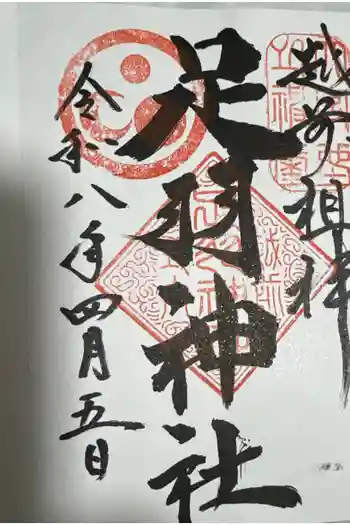 越前祖神
足羽神社
令和八年四月五日